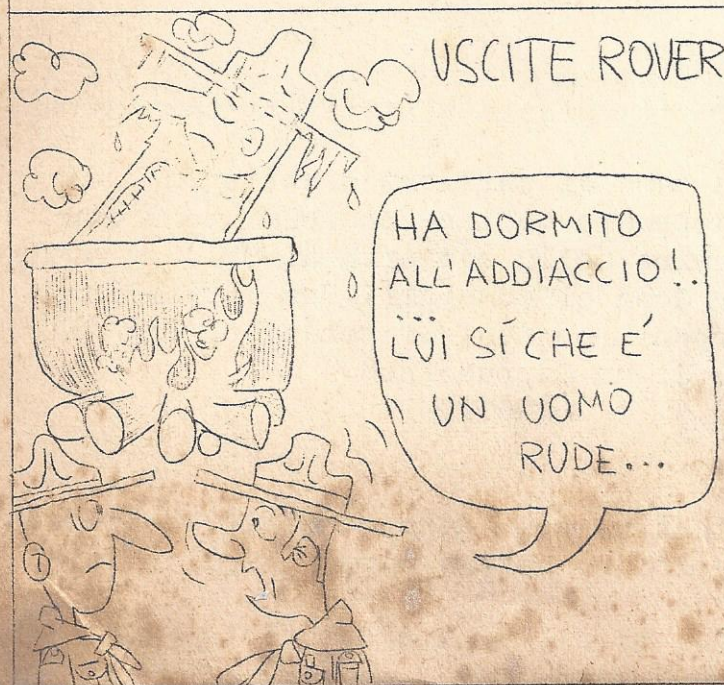 USCITE ROVER
HA DORMITO
ALL'ADDIACCIO!..
...
LUI SÍ CHE É
UN UOMO
RUDE...